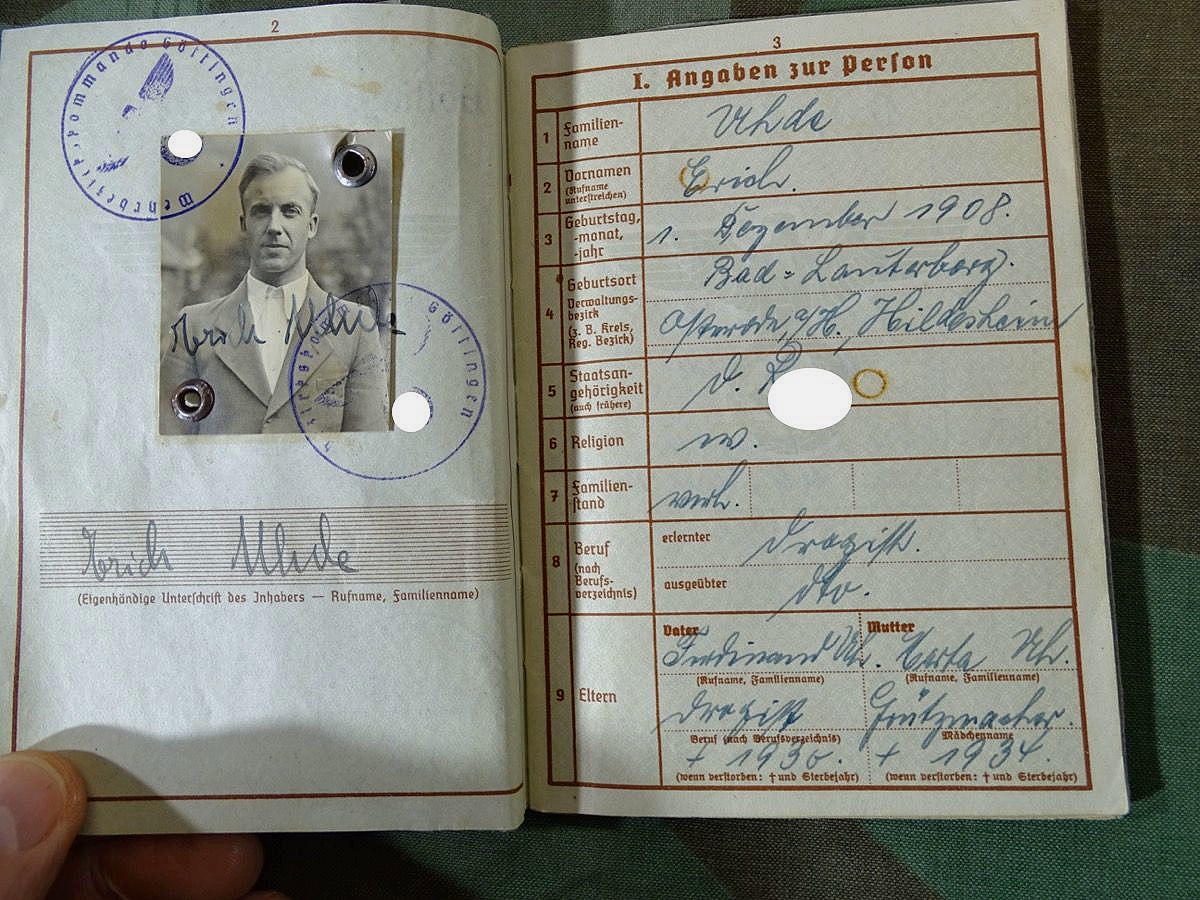 2
Wehrbezirkskommando Göttingen
Erich Uhde
Göttingen
Erich Uhde
(Eigenhändige Unterschrift des Inhabers — Rufname, Familienname)
3
I. Angaben zur Person
1 Familien-
name
Uhde
2 Vornamen
(Rufname
unterstreichen)
Erich.
3 Geburtstag,
-monat,
-jahr
1. Dezember 1908.
4 Geburtsort
Verwaltungs-
bezirk
(z. B. Kreis,
Reg. Bezirk)
Bad-Lauterberg.
Osterode a/H. Hildesheim
5 Staatsan-
gehörigkeit
(auch frühere)
d. R
6 Religion
ev.
7 Familien-
stand
verh.
8 Beruf
(nach
Berufs-
verzeichnis)
erlernter
Drogist.
ausgeübter
dto.
9 Eltern
Vater Mutter
Ferdinand Uh. Herta Uh.
(Rufname, Familienname) (Rufname, Familienname)
Drogist Grützmacher.
Beruf (nach Berufsverzeichnis) Mädchenname
+ 1936. + 1934.
(wenn verstorben: † und Sterbejahr) (wenn verstorben: † und Sterbejahr)